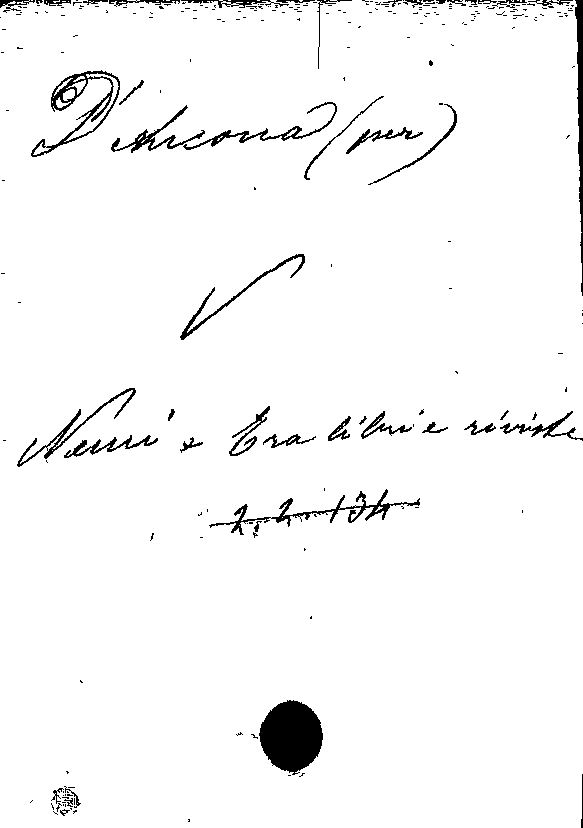 D'Ancona (per)
V
Nemi e Era libri e riviste
2.2.134